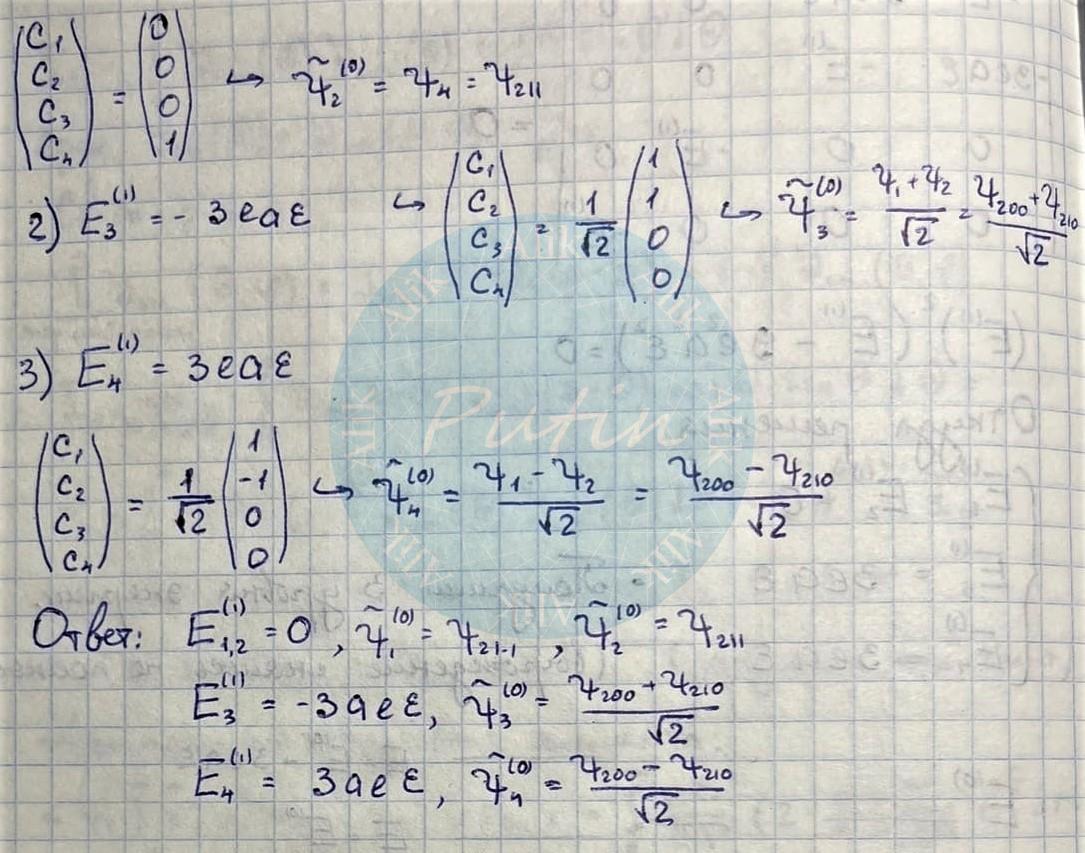 (C₁ C₂ C₃ C₄) = (0 0 0 1) ↪ ψ̃₂⁽⁰⁾ = ψ₄ = ψ₂₁₁
2) E₃⁽¹⁾ = - 3eaε ↪ (C₁ C₂ C₃ C₄) = 1/√2 (1 1 0 0) ↪ ψ̃₃⁽⁰⁾ = (ψ₁+ψ₂)/√2 = (ψ₂₀₀+ψ₂₁₀)/√2
3) E₄⁽¹⁾ = 3eaε
(C₁ C₂ C₃ C₄) = 1/√2 (1 -1 0 0) ↪ ψ̃₄⁽⁰⁾ = (ψ₁ - ψ₂)/√2 = (ψ₂₀₀ - ψ₂₁₀)/√2
Ответ: E₁,₂⁽¹⁾ = 0, ψ̃₁⁽⁰⁾ = ψ₂₁₋₁, ψ̃₂⁽⁰⁾ = ψ₂₁₁
E₃⁽¹⁾ = -3aeε, ψ̃₃⁽⁰⁾ = (ψ₂₀₀+ψ₂₁₀)/√2
E₄⁽¹⁾ = 3aeε, ψ̃₄⁽⁰⁾ = (ψ₂₀₀ - ψ₂₁₀)/√2
Alik Putin